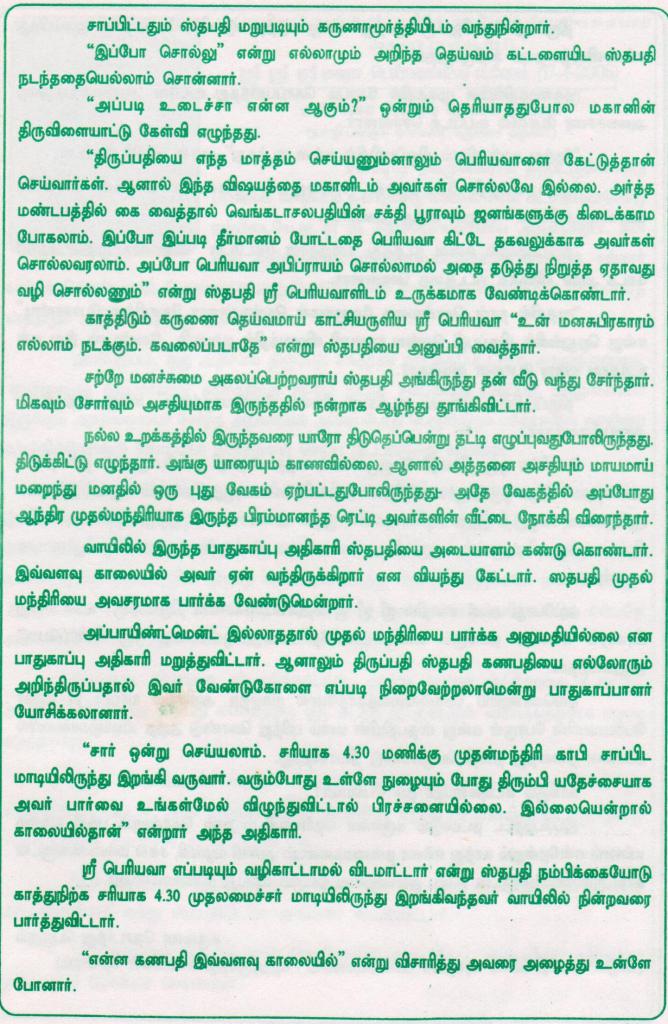 சாப்பிட்டதும் ஸ்தபதி மறுபடியும் கருணாமூர்த்தியிடம் வந்துநின்றார்.
“இப்போ சொல்லு” என்று எல்லாமும் அறிந்த தெய்வம் கட்டளையிட ஸ்தபதி
நடந்ததையெல்லாம் சொன்னார்.
“அப்படி உடைச்சா என்ன ஆகும்?” ஒன்றும் தெரியாததுபோல மகானின்
திருவிளையாட்டு கேள்வி எழுந்தது.
“திருப்பதியை எந்த மாத்தம் செய்யணும்னாலும் பெரியவாளை கேட்டுத்தான்
செய்வார்கள். ஆனால் இந்த விஷயத்தை மகானிடம் அவர்கள் சொல்லவே இல்லை. அர்த்த
மண்டபத்தில் கை வைத்தால் வெங்கடாசலபதியின் சக்தி பூராவும் ஜனங்களுக்கு கிடைக்காம
போகலாம். இப்போ இப்படி தீர்மானம் போட்டதை பெரியவா கிட்டே தகவலுக்காக அவர்கள்
சொல்லவரலாம். அப்போ பெரியவா அபிப்ராயம் சொல்லாமல் அதை தடுத்து நிறுத்த ஏதாவது
வழி சொல்லணும்” என்று ஸ்தபதி ஸ்ரீ பெரியவாளிடம் உருக்கமாக வேண்டிக்கொண்டார்.
காத்திடும் கருணை தெய்வமாய் காட்சியருளிய ஸ்ரீ பெரியவா “உன் மனசுபிரகாரம்
எல்லாம் நடக்கும். கவலைப்படாதே” என்று ஸ்தபதியை அனுப்பி வைத்தார்.
சற்றே மனச்சுமை அகலப்பெற்றவராய் ஸ்தபதி அங்கிருந்து தன் வீடு வந்து சேர்ந்தார்.
மிகவும் சோர்வும் அசதியுமாக இருந்ததில் நன்றாக ஆழ்ந்து தூங்கிவிட்டார்.
நல்ல உறக்கத்தில் இருந்தவரை யாரோ திடுதெப்பென்று தட்டி எழுப்புவதுபோலிருந்தது.
திடுக்கிட்டு எழுந்தார். அங்கு யாரையும் காணவில்லை. ஆனால் அத்தனை அசதியும் மாயமாய்
மறைந்து மனதில் ஒரு புது வேகம் ஏற்பட்டதுபோலிருந்தது- அதே வேகத்தில் அப்போது
ஆந்திர முதல்மந்திரியாக இருந்த பிரம்மானந்த ரெட்டி அவர்களின் வீட்டை நோக்கி விரைந்தார்.
வாயிலில் இருந்த பாதுகாப்பு அதிகாரி ஸ்தபதியை அடையாளம் கண்டு கொண்டார்.
இவ்வளவு காலையில் அவர் ஏன் வந்திருக்கிறார் என வியந்து கேட்டார். ஸதபதி முதல்
மந்திரியை அவசரமாக பார்க்க வேண்டுமென்றார்.
அப்பாயிண்ட்மென்ட் இல்லாததால் முதல் மந்திரியை பார்க்க அனுமதியில்லை என
பாதுகாப்பு அதிகாரி மறுத்துவிட்டார். ஆனாலும் திருப்பதி ஸ்தபதி கணபதியை எல்லோரும்
அறிந்திருப்பதால் இவர் வேண்டுகோளை எப்படி நிறைவேற்றலாமென்று பாதுகாப்பாளர்
யோசிக்கலானார்.
“சார் ஒன்று செய்யலாம். சரியாக 4.30 மணிக்கு முதன்மந்திரி காபி சாப்பிட
மாடியிலிருந்து இறங்கி வருவார். வரும்போது உள்ளே நுழையும் போது திரும்பி யதேச்சையாக
அவர் பார்வை உங்கள்மேல் விழுந்துவிட்டால் பிரச்சனையில்லை. இல்லையென்றால்
காலையில்தான்” என்றார் அந்த அதிகாரி.
ஸ்ரீ பெரியவா எப்படியும் வழிகாட்டாமல் விடமாட்டார் என்று ஸ்தபதி நம்பிக்கையோடு
காத்துநிற்க சரியாக 4.30 முதலமைச்சர் மாடியிலிருந்து இறங்கிவந்தவர் வாயிலில் நின்றவரை
பார்த்துவிட்டார்.
“என்ன கணபதி இவ்வளவு காலையில்” என்று விசாரித்து அவரை அழைத்து உன்ளே
போனார்.